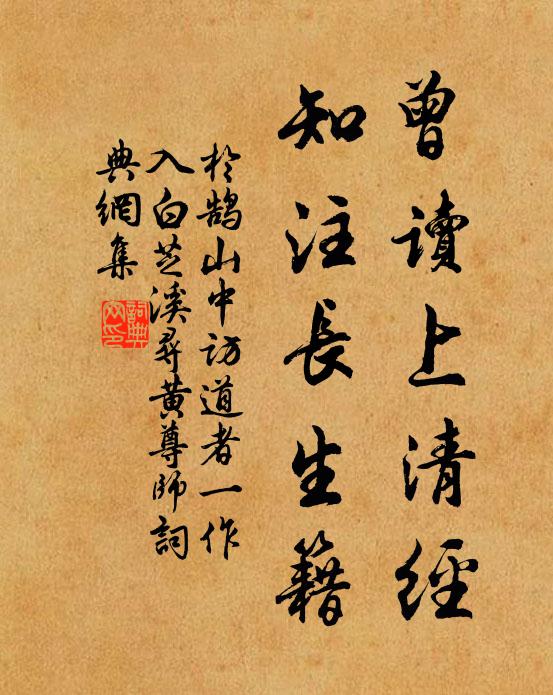 曾讀上清經
知注長生籍
於鵠山中訪道者一作
入白芝溪尋黄尊師詞
典網集
詞典
文印